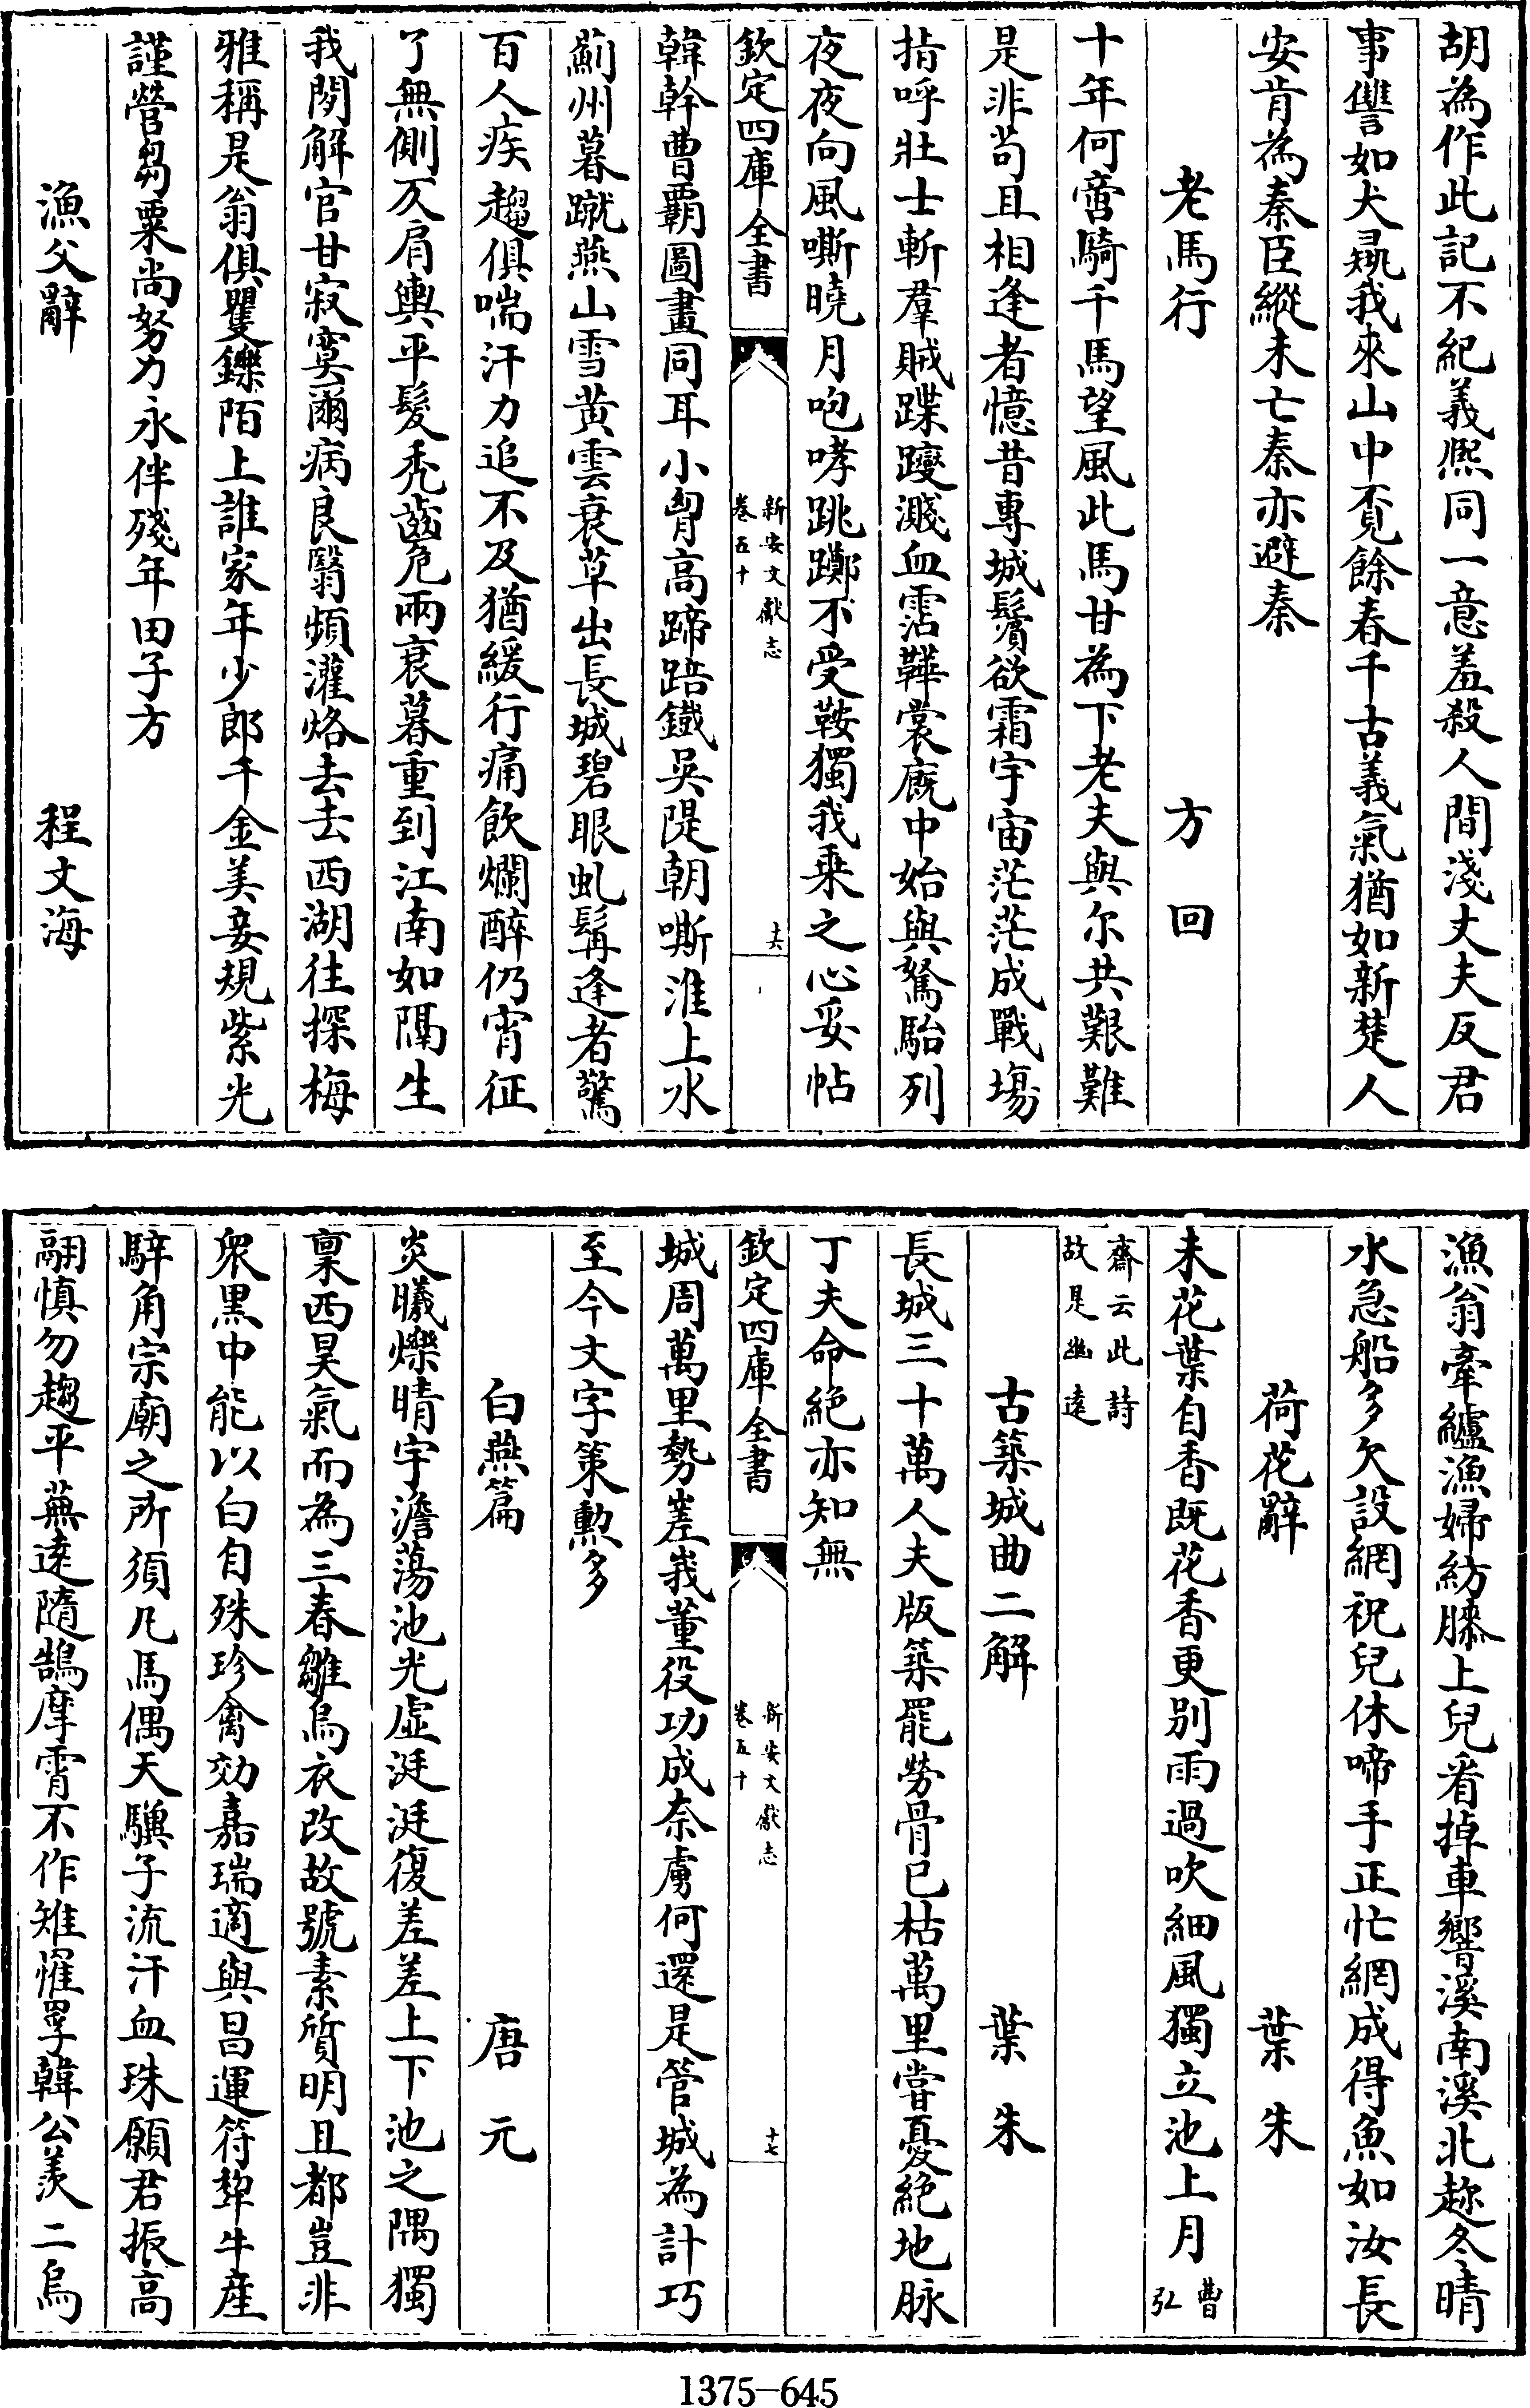 胡為作此記不紀義熈同一意羞殺人間淺丈夫反君
事讐如犬彘我來山中覔餘春千古義氣猶如新楚人
安肯為秦臣縱未亡秦亦避秦
老馬行　方回
十年何啻騎千馬望風此馬甘為下老夫與尔共艱難
是非苟且相逢者憶昔專城鬢欲霜宇宙茫茫成戰塲
指呼壯士斬羣賊蹀躞濺血霑鞾裳廐中始與駑駘列
夜夜向風嘶曉月咆哮跳躑不受鞍獨我乘之心妥帖
欽定四庫全書　新安文獻志　卷五十　十六
韓幹曹霸圖畫同耳小胷高蹄踣鐵吳隄朝嘶淮上水
薊州暮蹴燕山雪黄雲衰草出長城碧眼虬髯逢者驚
百人疾趨俱喘汗力追不及猶緩行痛飲爛醉仍宵征
了無側仄肩輿平髮秃齒危兩衰暮重到江南如隔生
我閲解官甘寂寞爾病良醫頻灌烙去去西湖往探梅
雅稱是翁俱矍鑠陌上誰家年少郎千金美妾規紫光
謹營芻粟尚努力永伴殘年田子方
漁父辭　程文海
漁翁牽纑漁婦紡膝上兒看掉車響溪南溪北趂冬晴
水急船多欠設網祝兒休啼手正忙網成得魚如汝長
荷花辭　葉朱
未花葉自香既花香更别雨過吹細風獨立池上月曹弘
齋云此詩故是幽遠
古築城曲二解　葉朱
長城三十萬人夫版築罷勞骨已枯萬里嘗憂絶地脉
丁夫命絶亦知無
欽定四庫全書　新安文獻志　卷五十　十七
城周萬里勢嵳峩董役功成奈虜何還是管城為計巧
至今文字策勲多
白燕篇　唐元
炎曦爍晴宇澹蕩池光虛涏涏復差差上下池之隅獨
禀西昊氣而為三春雛烏衣改故號素質明且都豈非
衆黒中能以白自殊珍禽効嘉瑞適與昌運符犂牛産
騂角宗廟之所須凡馬偶天驥子流汗血珠願君振高
翮慎勿趨平蕪逺隨鵠摩霄不作雉罹罦韓公羨二鳥
1375-645